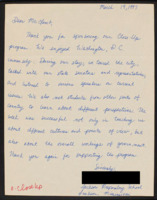 March 19, 1993
Dear Mr. Clark,
Thank you for sponsoring our Close-Up
program. We enjoyed Washington, D.C.
immensely. During our stay, we toured the city,
talked with our state senators and representatives,
and listened to various speakers on current
issues. We also met students from other parts of
country to learn about different perspectives. The
week was successful not only in teaching us
about different cultures and points of view, but
also about the various workings of government.
Thank you again for supporting the program.
Sincerely,
Jackson Preparatory School
Jackson, Mississippi
Close Up